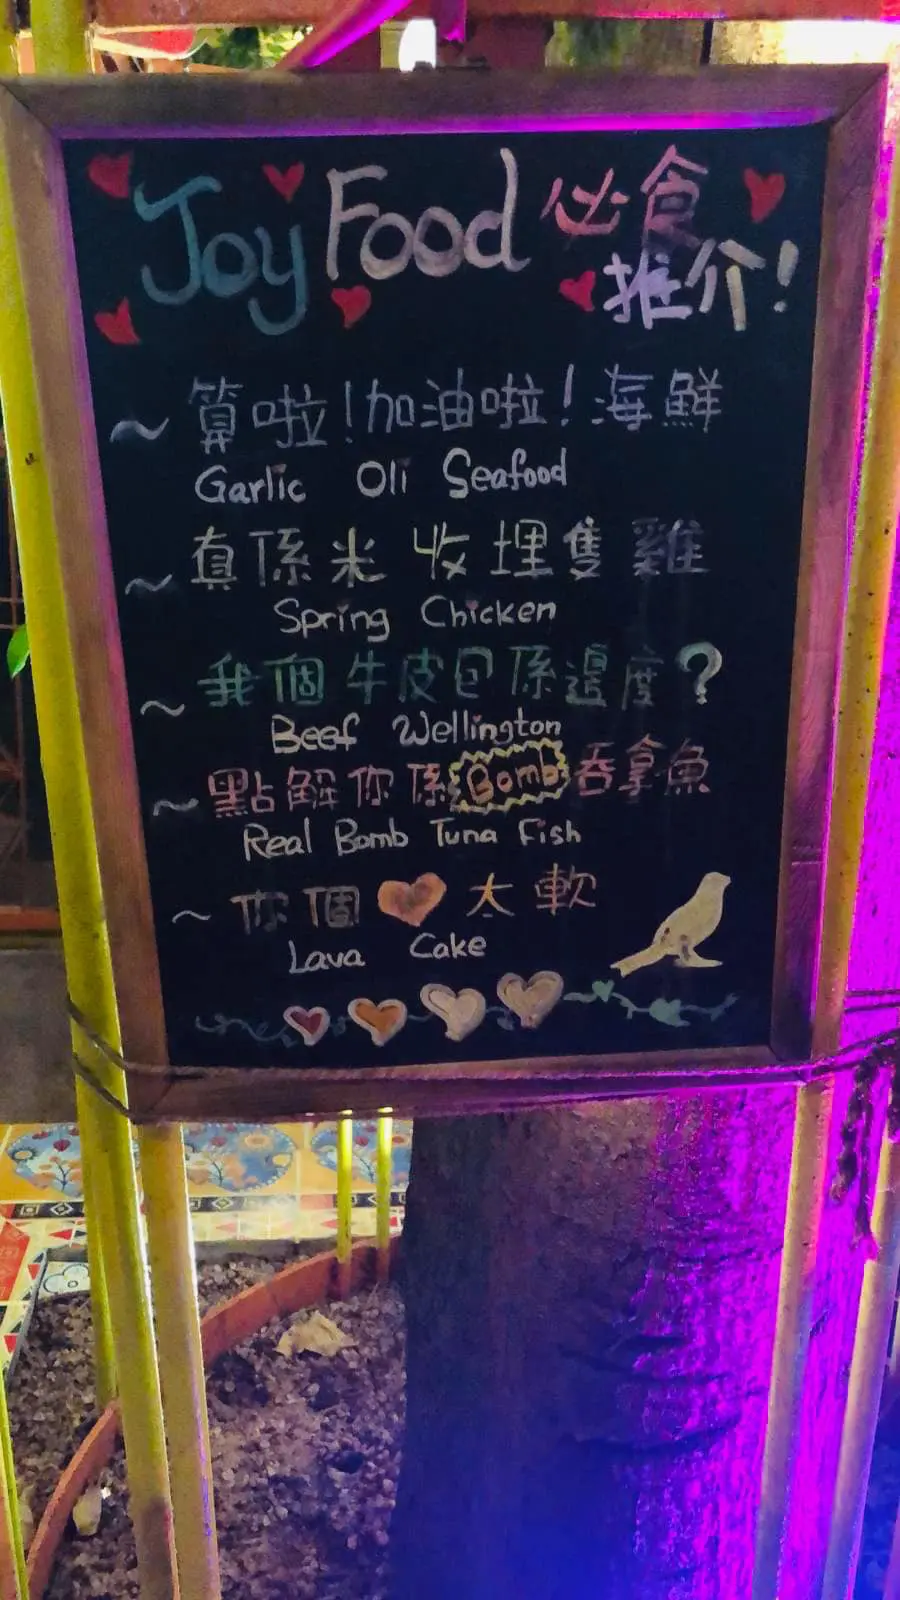 Joy Food 必食
推介!
~ 算啦!加油啦!海鮮
Garlic Oli Seafood
~ 真係米收埋隻雞
Spring Chicken
~ 我個牛皮包係邊度?
Beef Wellington
~ 點解你係Bomb吞拿魚
Real Bomb Tuna Fish
~ 你個❤太軟
Lava Cake